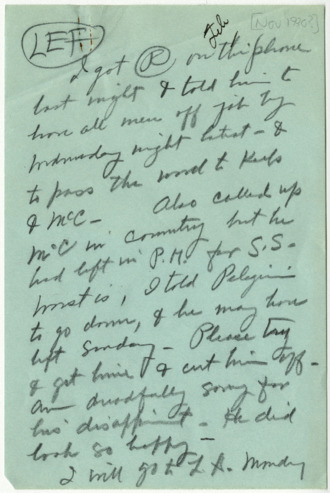 LEFT
Feb
[Nov 1928?]
I got (P) on the phone
last night & told him to
have all men off job by
Wednesday night latest - &
to pass the word to Keels
& McC - Also called up
McC in country but he
had left in P.M. for S.S.
Worst is, I told Pelgrin
to go down, & he may have
left Sunday - Please try
& get him & cut him off -
Am dreadfully sorry for
his disappoint - He did
look so happy -
I will go to L.A. Monday